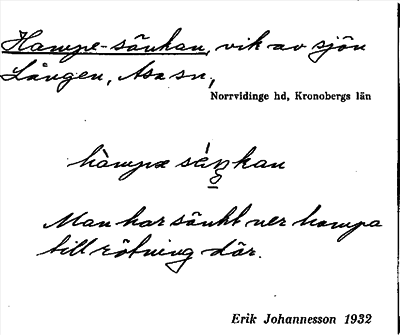 Hampe-sänkan, vik av sjön
Lången, Asa sn,
Norrvidinge hd, Kronobergs län
hàmpæ säŋkan
Man har sänkt ner hampa
till rötning där.
Erik Johannesson 1932